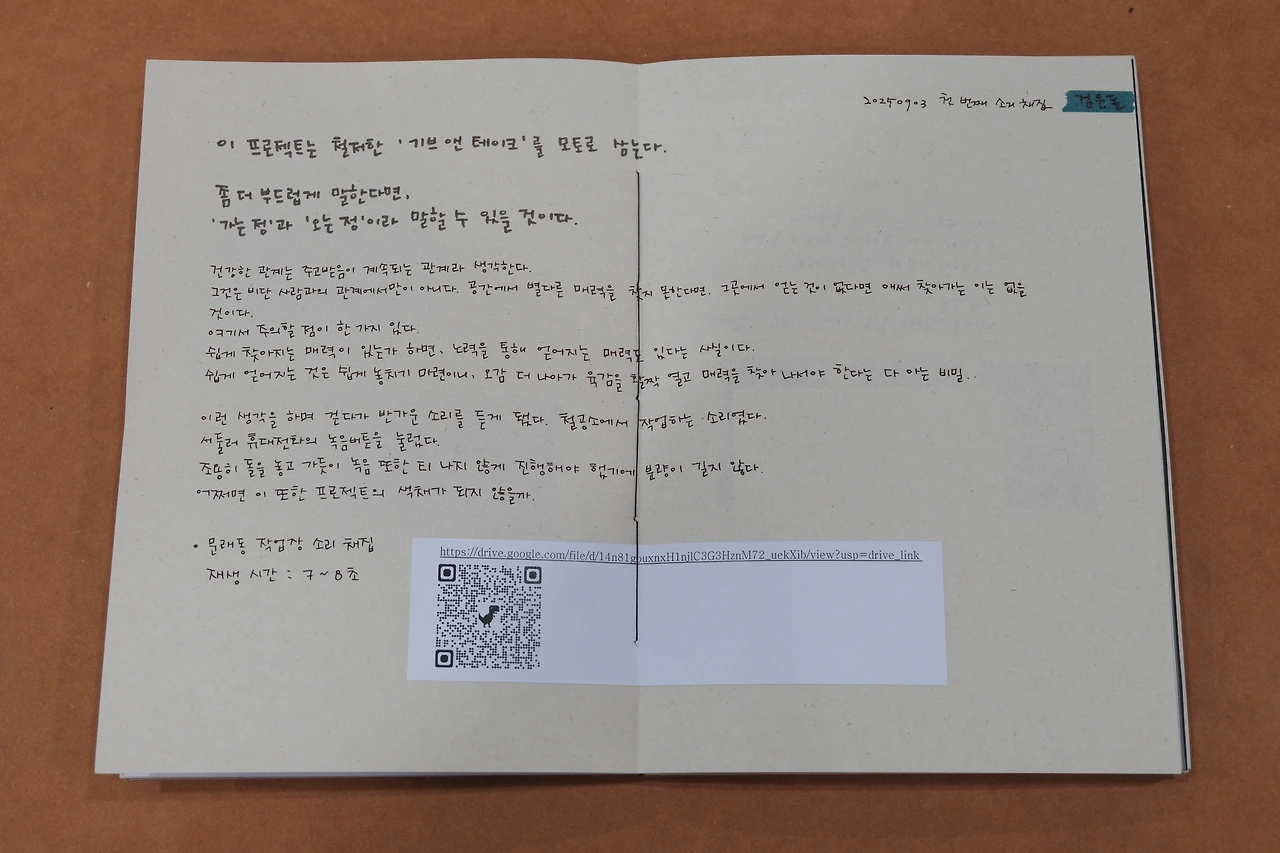 20250903 첫 번째 소리 채집 검은돌
이 프로젝트는 철저한 '기브 앤 테이크'를 모토로 삼는다.
좀 더 부드럽게 말한다면,
'가는 정'과 '오는 정'이라 말할 수 있을 것이다.
건강한 관계는 주고받음이 계속되는 관계라 생각한다.
그것은 비단 사람과의 관계에서만이 아니다. 공간에서 별다른 매력을 찾지 못한다면, 그곳에서 얻는 것이 없다면 애써 찾아가는 이는 없을
것이다.
여기서 주의할 점이 한 가지 있다.
쉽게 찾아지는 매력이 있는가 하면, 노력을 통해 얻어지는 매력도 있다는 사실이다.
쉽게 얻어지는 것은 쉽게 놓치기 마련이니, 오감 더 나아가 육감을 활짝 열고 매력을 찾아 나서야 한다는 다 아는 비밀..
이런 생각을 하며 걷다가 반가운 소리를 듣게 됐다. 철공소에서 작업하는 소리였다.
서둘러 휴대전화의 녹음버튼을 눌렀다.
조용히 돌을 놓고 가듯이 녹음 또한 티 나지 않게 진행해야 했기에 분량이 길지 않다.
어쩌면 이 또한 프로젝트의 색채가 되지 않을까.
• 문래동 작업장 소리 채집
재생 시간 : 7~8초
https://drive.google.com/file/d/14n81gpuxnxH1njlC3G3HznM72_uekXib/view?usp=drive_link